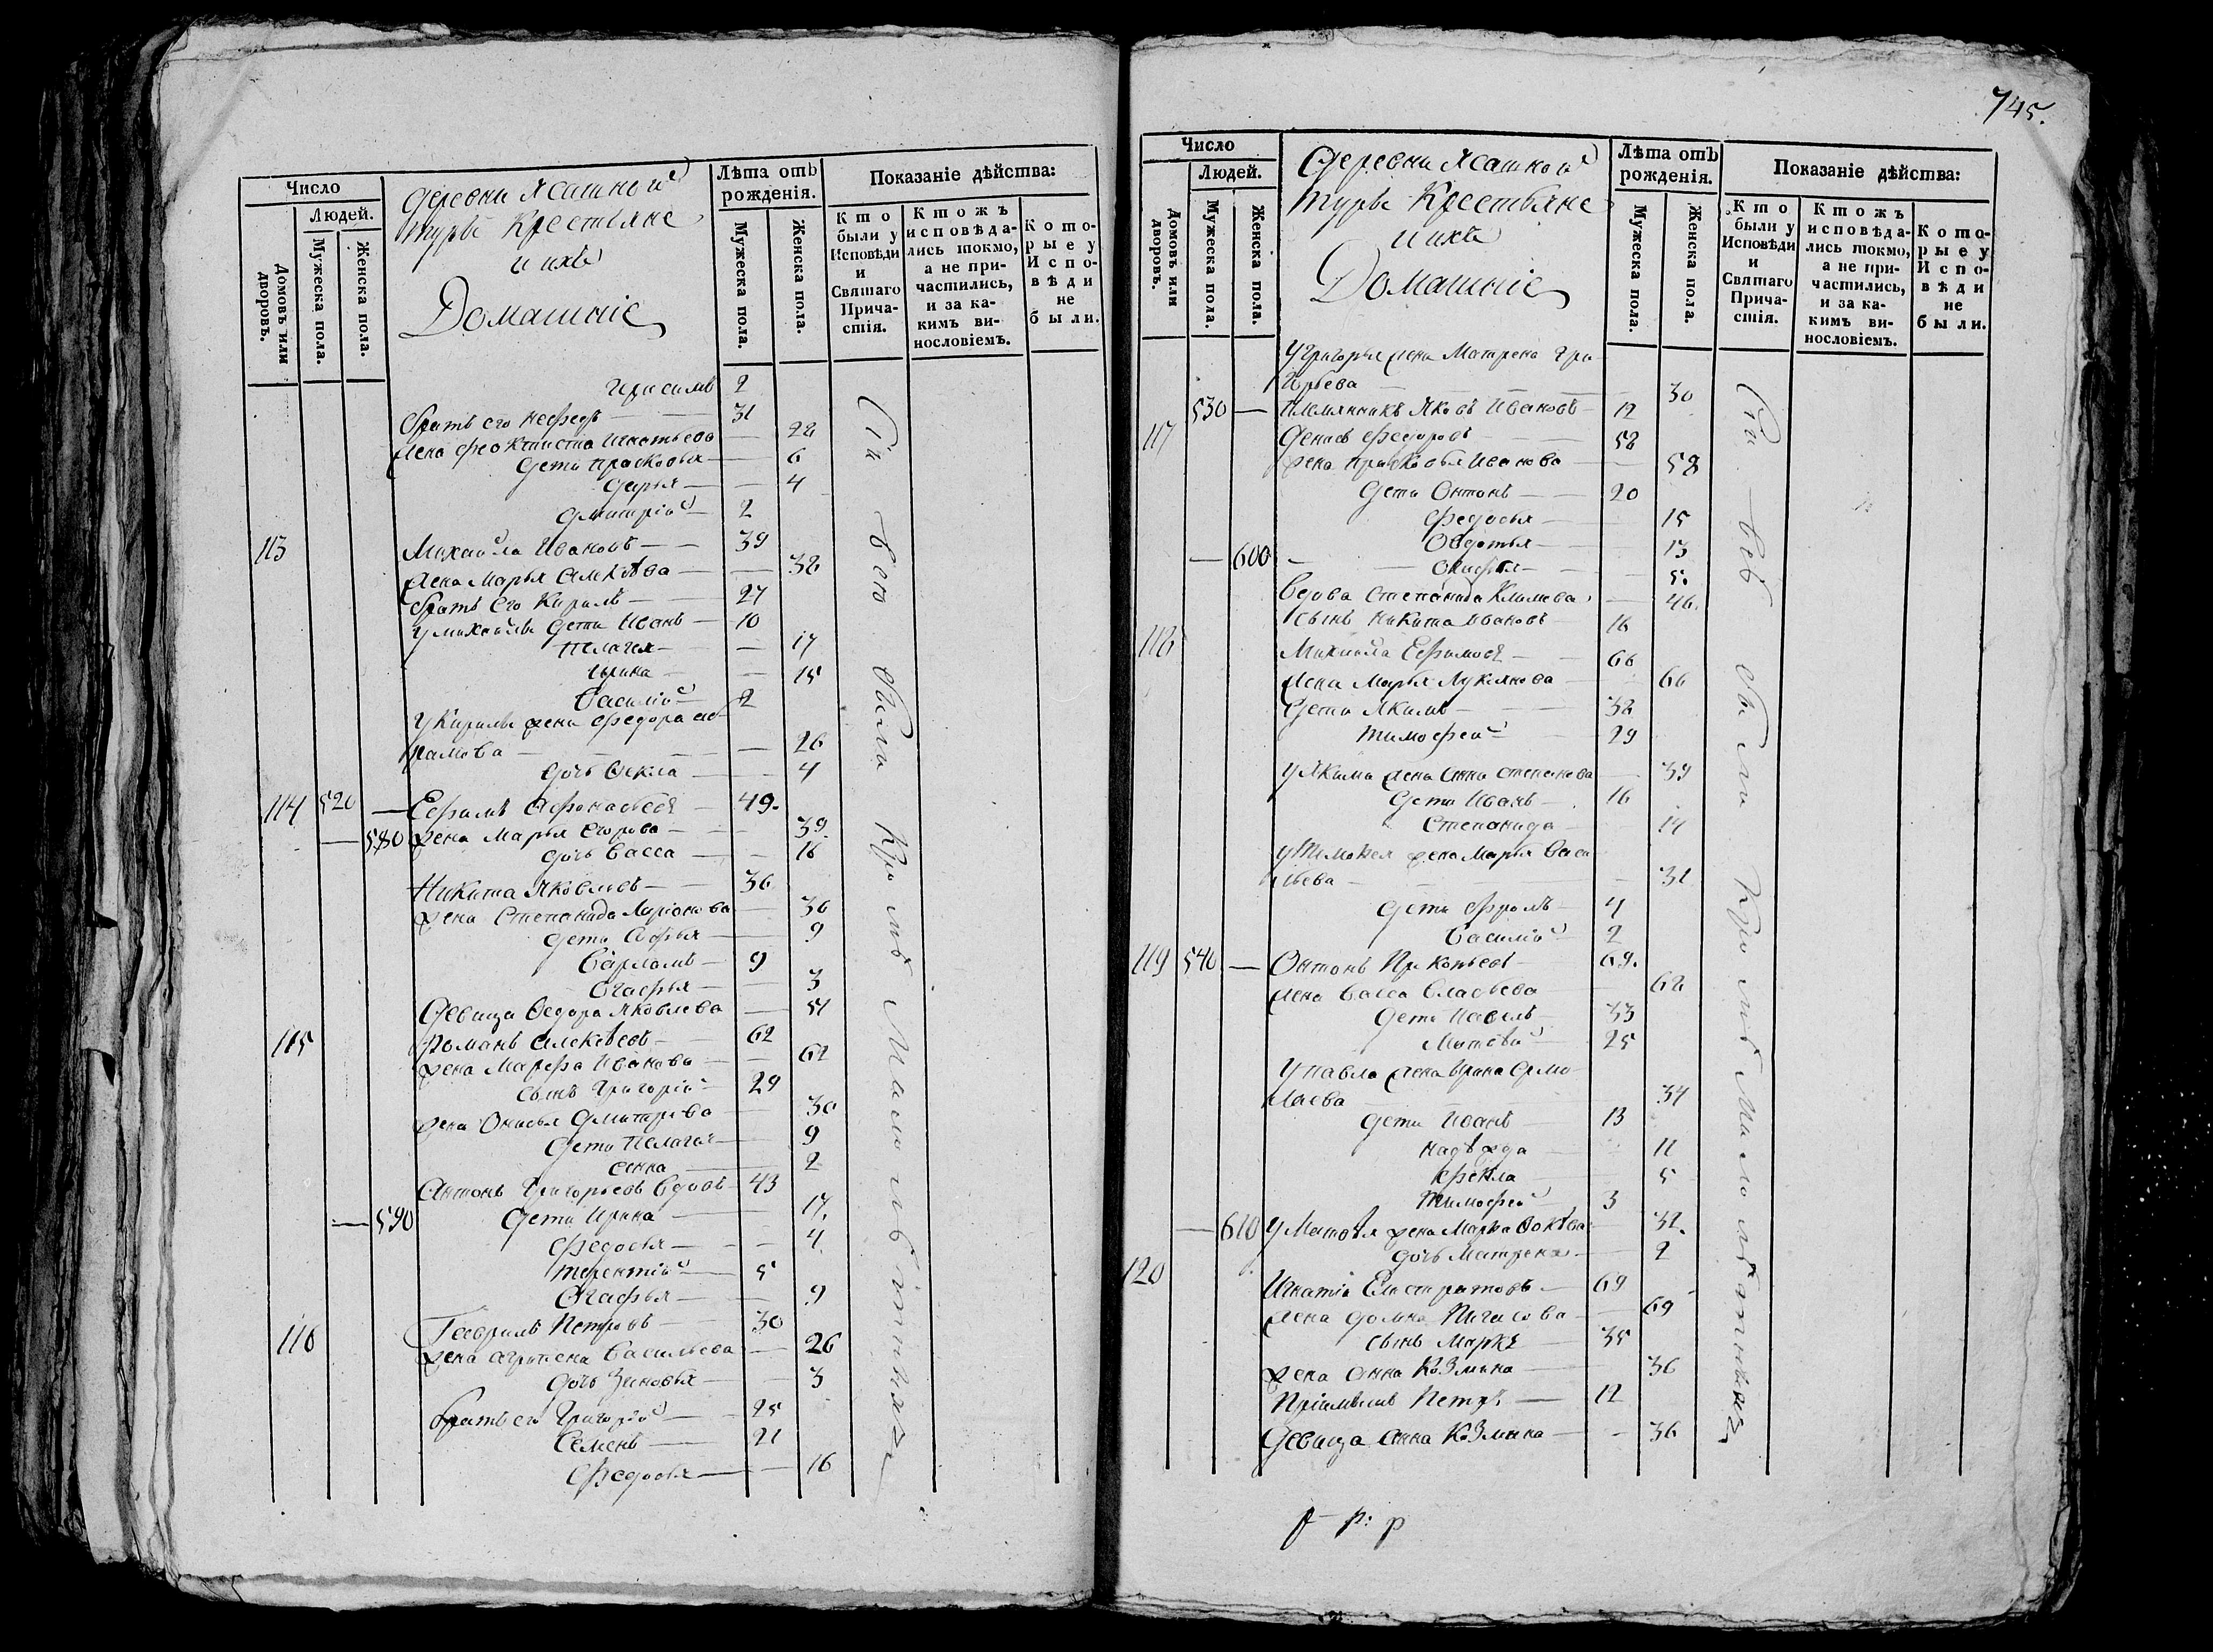 Число
Людей.
Домовъ или дворовъ.
Мужеска пола.
Женска пола.
деревни Ясашной
туры Крестьяне
и ихъ
Домашніе
Лѣта отъ
рожденія.
Мужеска пола.
Женска пола.
Показаніе дѣйства:
Кто
были у
Исповѣди
и
Святаго
Прича-
стія.
Ктожъ
исповѣда-
лись токмо,
а не при-
частились,
и за ка-
кимъ ви-
нословіемъ.
Кото-
рые у
Испо-
вѣди
не
были.
2
братъ его Нефедъ — 31
жена Феоктиста Игнатьева — 22
дети Прасковья — 6
Дарья — 4
Дмитрій — 2
113 Михайла Ивановъ — 39
жена Марья Алексѣева — 38
братъ его Кирилъ — 27
у михайлы дети Иванъ — 10
Пелагея — 17
Ирина — 15
Василій — 2
у Кирилы жена Федора
— 26
дочь Фекла — 4
114 520 — Ефимъ Афонасьевъ — 49.
— 580 жена Марья Егорова — 39.
дочь Васса — 16
Никита Яковлевъ — 36
жена Степанида Ларіонова — 36
дети Софья — 9
Варламъ — 9
Агафья — 3
Девица Федора Яковлева — 51
115 Романъ Алексѣевъ — 62
жена Марфа Иванова — 62
сынъ Григорій — 29
жена Онисья Дмитрева — 30
дети Пелагея — 9
Анна — 2
Антонъ Григорьевъ вдовъ — 43
— 590 дети Ирина — 17.
Федосья — 4.
Терентій — 5
Агафья — 9
116 Гаврилъ Петровъ — 30
жена Агрипена Васильева — 26
дочь Зиновья — 3
братъ его Григорій — 25
Семенъ — 21
Федосья — 16
Сіи всѣ были Кро мѣ Мало лѣтныхъ
745.
Число
Людей.
Домовъ или дворовъ.
Мужеска пола.
Женска пола.
Деревни Ясашной
туры Крестьяне
и ихъ
Домашніе
Лѣта отъ
рожденія.
Мужеска пола.
Женска пола.
Показаніе дѣйства:
Кто
были у
Исповѣди
и
Святаго
Прича-
стія.
Ктожъ
исповѣда-
лись токмо,
а не при-
частились,
и за ка-
кимъ ви-
нословіемъ.
Кото-
рые у
Испо-
вѣди
не
были.
у Григорья жена Матрена Гри
горьева — 30
530 — племянникъ Яковъ Ивановъ — 12
117 Денисъ Федоровъ — 58
жена Прасковья Иванова — 58
дети Онтонъ — 20
Федосья — 15
Овдотья — 13
— 600 — 5.
Вдова Степанида Климова — 46.
сынъ Никита Ивановъ — 16
118 Михайла Ефимовъ — 66
жена Марья Лукянова — 66
дети Якимъ — 38
Тимофей — 29
у Якима жена Анна Степанова — 39
дети Иванъ — 16
Степанида — 14
у Тимофея жена Марья Васи
льева — 31
дети Фролъ — 4
Василій — 2
119 540 — Онтонъ Прокопьевъ — 69.
жена Васса Власьева — 62
дети Павелъ — 33
Матвѣй — 25
у павла жена Ирина Ермо
лаева — 34
дети Иванъ — 13
надѣжда — 11
Фекла — 5
Тимофей — 3
— 610 у Матвѣя жена Марья — 32.
дочь Матрена — 2
120 Игнатій Елистратовъ — 69
жена Домна Пигасова — 69
сынъ Марко — 35
жена Анна Козмина — 36
Пріимышъ Петръ — 12
Девица Анна Козмина — 36
Сіи всѣ были Кро мѣ Мало лѣтныхъ